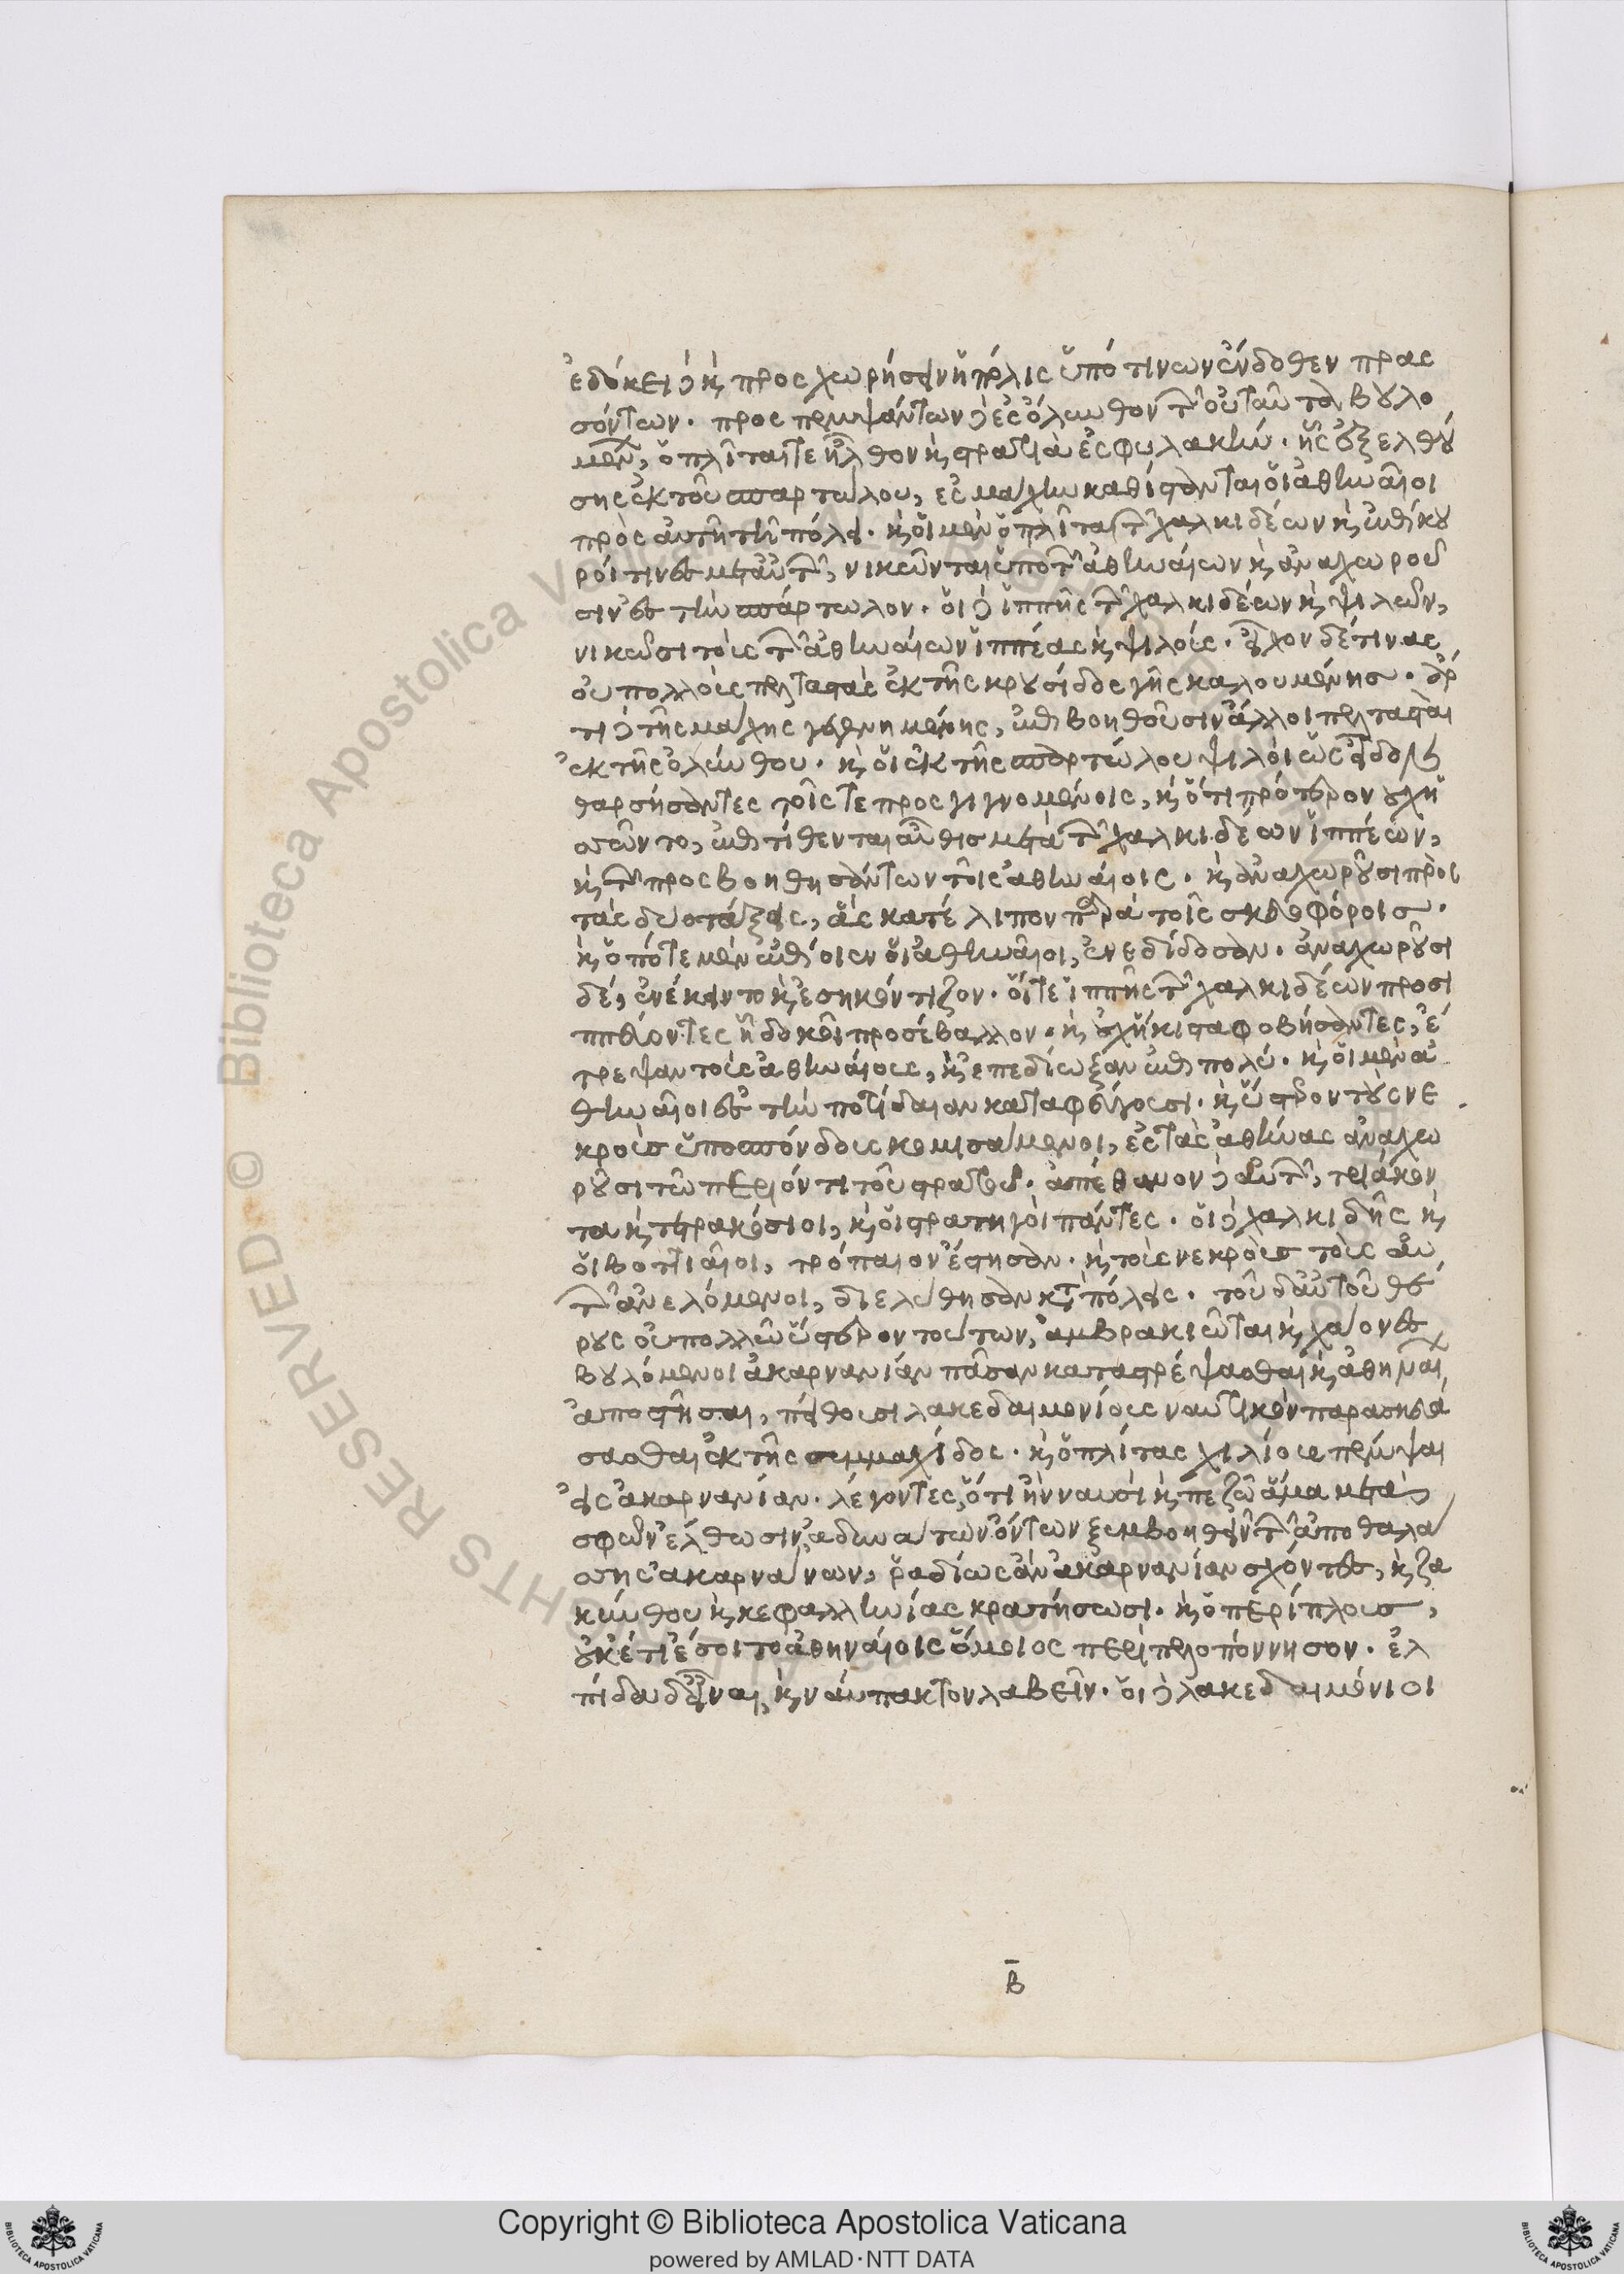 ἐδόκει δὲ καὶ προσχωρήσειν ἡ πόλις ὑπό τινων ἔνδοθεν πρασ
σόντων. προσπεμψάντων δὲ ἐς ὄλυνθον τῶν οὐ ταῦτα βουλο
μένων, ὁπλῖταί τε ἦλθον καὶ στρατιὰ ἐς φυλακήν. ἧς ἐξελθού
σης ἐκ τοῦ σπαρτώλου, ἐς μάχην καθίστανται οἱ ἀθηναῖοι
πρὸς αὐτῇ τῇ πόλει. καὶ οἱ μὲν ὁπλῖται τῶν χαλκιδέων καὶ ἐπίκου
ροί τινες μετ' αὐτῶν, νικῶνται ὑπὸ τῶν ἀθηναίων καὶ ἀναχωροῦ
σιν ἐς τὴν σπάρτωλον. οἱ δὲ ἱππῆς τῶν χαλκιδέων καὶ ψιλῶν,
νικῶσι τοὺς τῶν ἀθηναίων ἱππέας καὶ ψιλούς. εἶχον δέ τινας
οὐ πολλοὺς πελταστὰς ἐκ τῆς κρουσίδος γῆς καλουμένησ. ἄρ
τι δὲ τῆς μάχης γεγενημένης, ἐπιβοηθοῦσιν ἄλλοι πελτασταὶ
ἐκ τῆς ὀλύνθου. καὶ οἱ ἐκ τῆς σπαρτώλου ψιλοὶ ὡς εἶδον,
θαρσήσαντες τοῖς τε προσγιγνομένοις, καὶ ὅτι πρότερον οὐχ ἡ
σσῶντο, ἐπιτίθενται αὖθισ μετὰ τῶν χαλκιδέων ἱππέων,
καὶ τῶν προσβοηθησάντων τοῖς ἀθηναίοις. καὶ ἀναχωροῦσι πρὸς
τὰς δύο τάξεις, ἃς κατέλιπον παρὰ τοῖς σκευοφόροισ.
καὶ ὁπότε μὲν ἐπίοιεν οἱ ἀθηναῖοι, ἐνεδίδοσαν. ἀναχωροῦσι
δέ, ἐνέκειντο καὶ ἐσηκόντιζον. οἵ τε ἱππῆς τῶν χαλκιδέων προσι
ππεύοντες ᾗ δοκοῖ προσέβαλλον. καὶ οὐχ ἥκιστα φοβήσαντες, ἔ
τρεψαν τοὺς ἀθηναίους, καὶ ἐπεδίωξαν ἐπὶ πολύ. καὶ οἱ μὲν ἀ
θηναῖοι ἐς τὴν ποτίδαιαν καταφεύγουσι. καὶ ὕστερον τοὺς νε
κροὺσ ὑποσπόνδους κομισάμενοι, ἐς τὰς ἀθήνας ἀναχω
ροῦσι τῷ περιόντι τοῦ στρατοῦ. ἀπέθανον δὲ αὐτῶν, τριάκον
τα καὶ τετρακόσιοι, καὶ οἱ στρατηγοὶ πάντες. οἱ δὲ χαλκιδῆς καὶ
οἱ βοττιαῖοι, τρόπαιον ἔστησαν. καὶ τοὺς νεκροὺσ τοὺς αὑ
τῶν ἀνελόμενοι, διελύθησαν κατὰ πόλεις. τοῦ δ' αὐτοῦ θέ
ρους οὐ πολλῷ ὕστερον τούτων, ἀμβρακιῶται καὶ χάονες
βουλόμενοι ἀκαρνανίαν πᾶσαν καταστρέψασθαι καὶ ἀθηναίων
ἀποστῆσαι, πείθουσι λακεδαιμονίους ναυτικὸν παρασκευά
σασθαι ἐκ τῆς ξυμμαχίδος. καὶ ὁπλίτας χιλίους πέμψαι
εἰς ἀκαρνανίαν. λέγοντες, ὅτι ἢν ναυσὶ καὶ πεζῷ ἅμα μετὰ
σφῶν ἔλθωσιν, ἀδυνάτων ὄντων ξυμβοηθεῖν τῶν ἀπὸ θαλά
σσης ἀκαρνάνων, ῥαδίως ἂν ἀκαρνανίαν σχόντες, καὶ ζα
κύνθου καὶ κεφαλληνίας κρατήσωσι. καὶ ὁ περίπλουσ,
οὐκέτι ἔσοιτο ἀθηναίοις ὅμοιος περὶ πελοπόννησον. ἐλ
πίδα δ' εἶναι, καὶ ναύπακτον λαβεῖν. οἱ δὲ λακεδαιμόνιοι
β
© Biblioteca Apostolica Vaticana
Copyright © Biblioteca Apostolica Vaticana
powered by AMLAD·NTT DATA